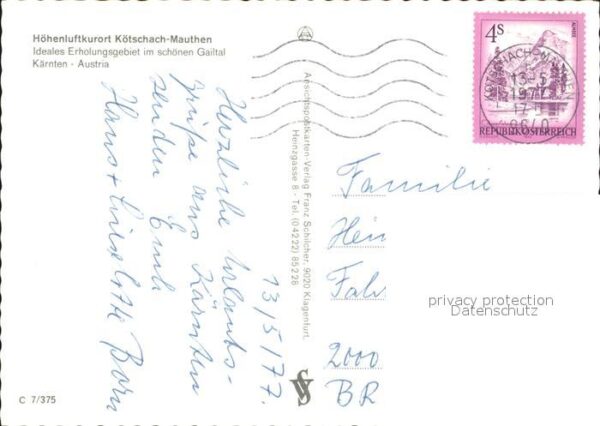 Höhenluftkurort Kötschach-Mauthen
Ideales Erholungsgebiet im schönen Gailtal
Kärnten - Austria
13/5/77.
Herzliche Urlaubs-
grüße aus Kärnten
senden Euch
Hans + Liselotte Born
C 7/375
Ansichtspostkarten-Verlag Franz Schilcher, 9020 Klagenfurt,
Heinzgasse 8 - Tel. (04222) 85228
4S
ALMSEE
REPUBLIK ÖSTERREICH
13-5
1977
Familie
Hein
Fah
2000
BR
privacy protection
Datenschutz